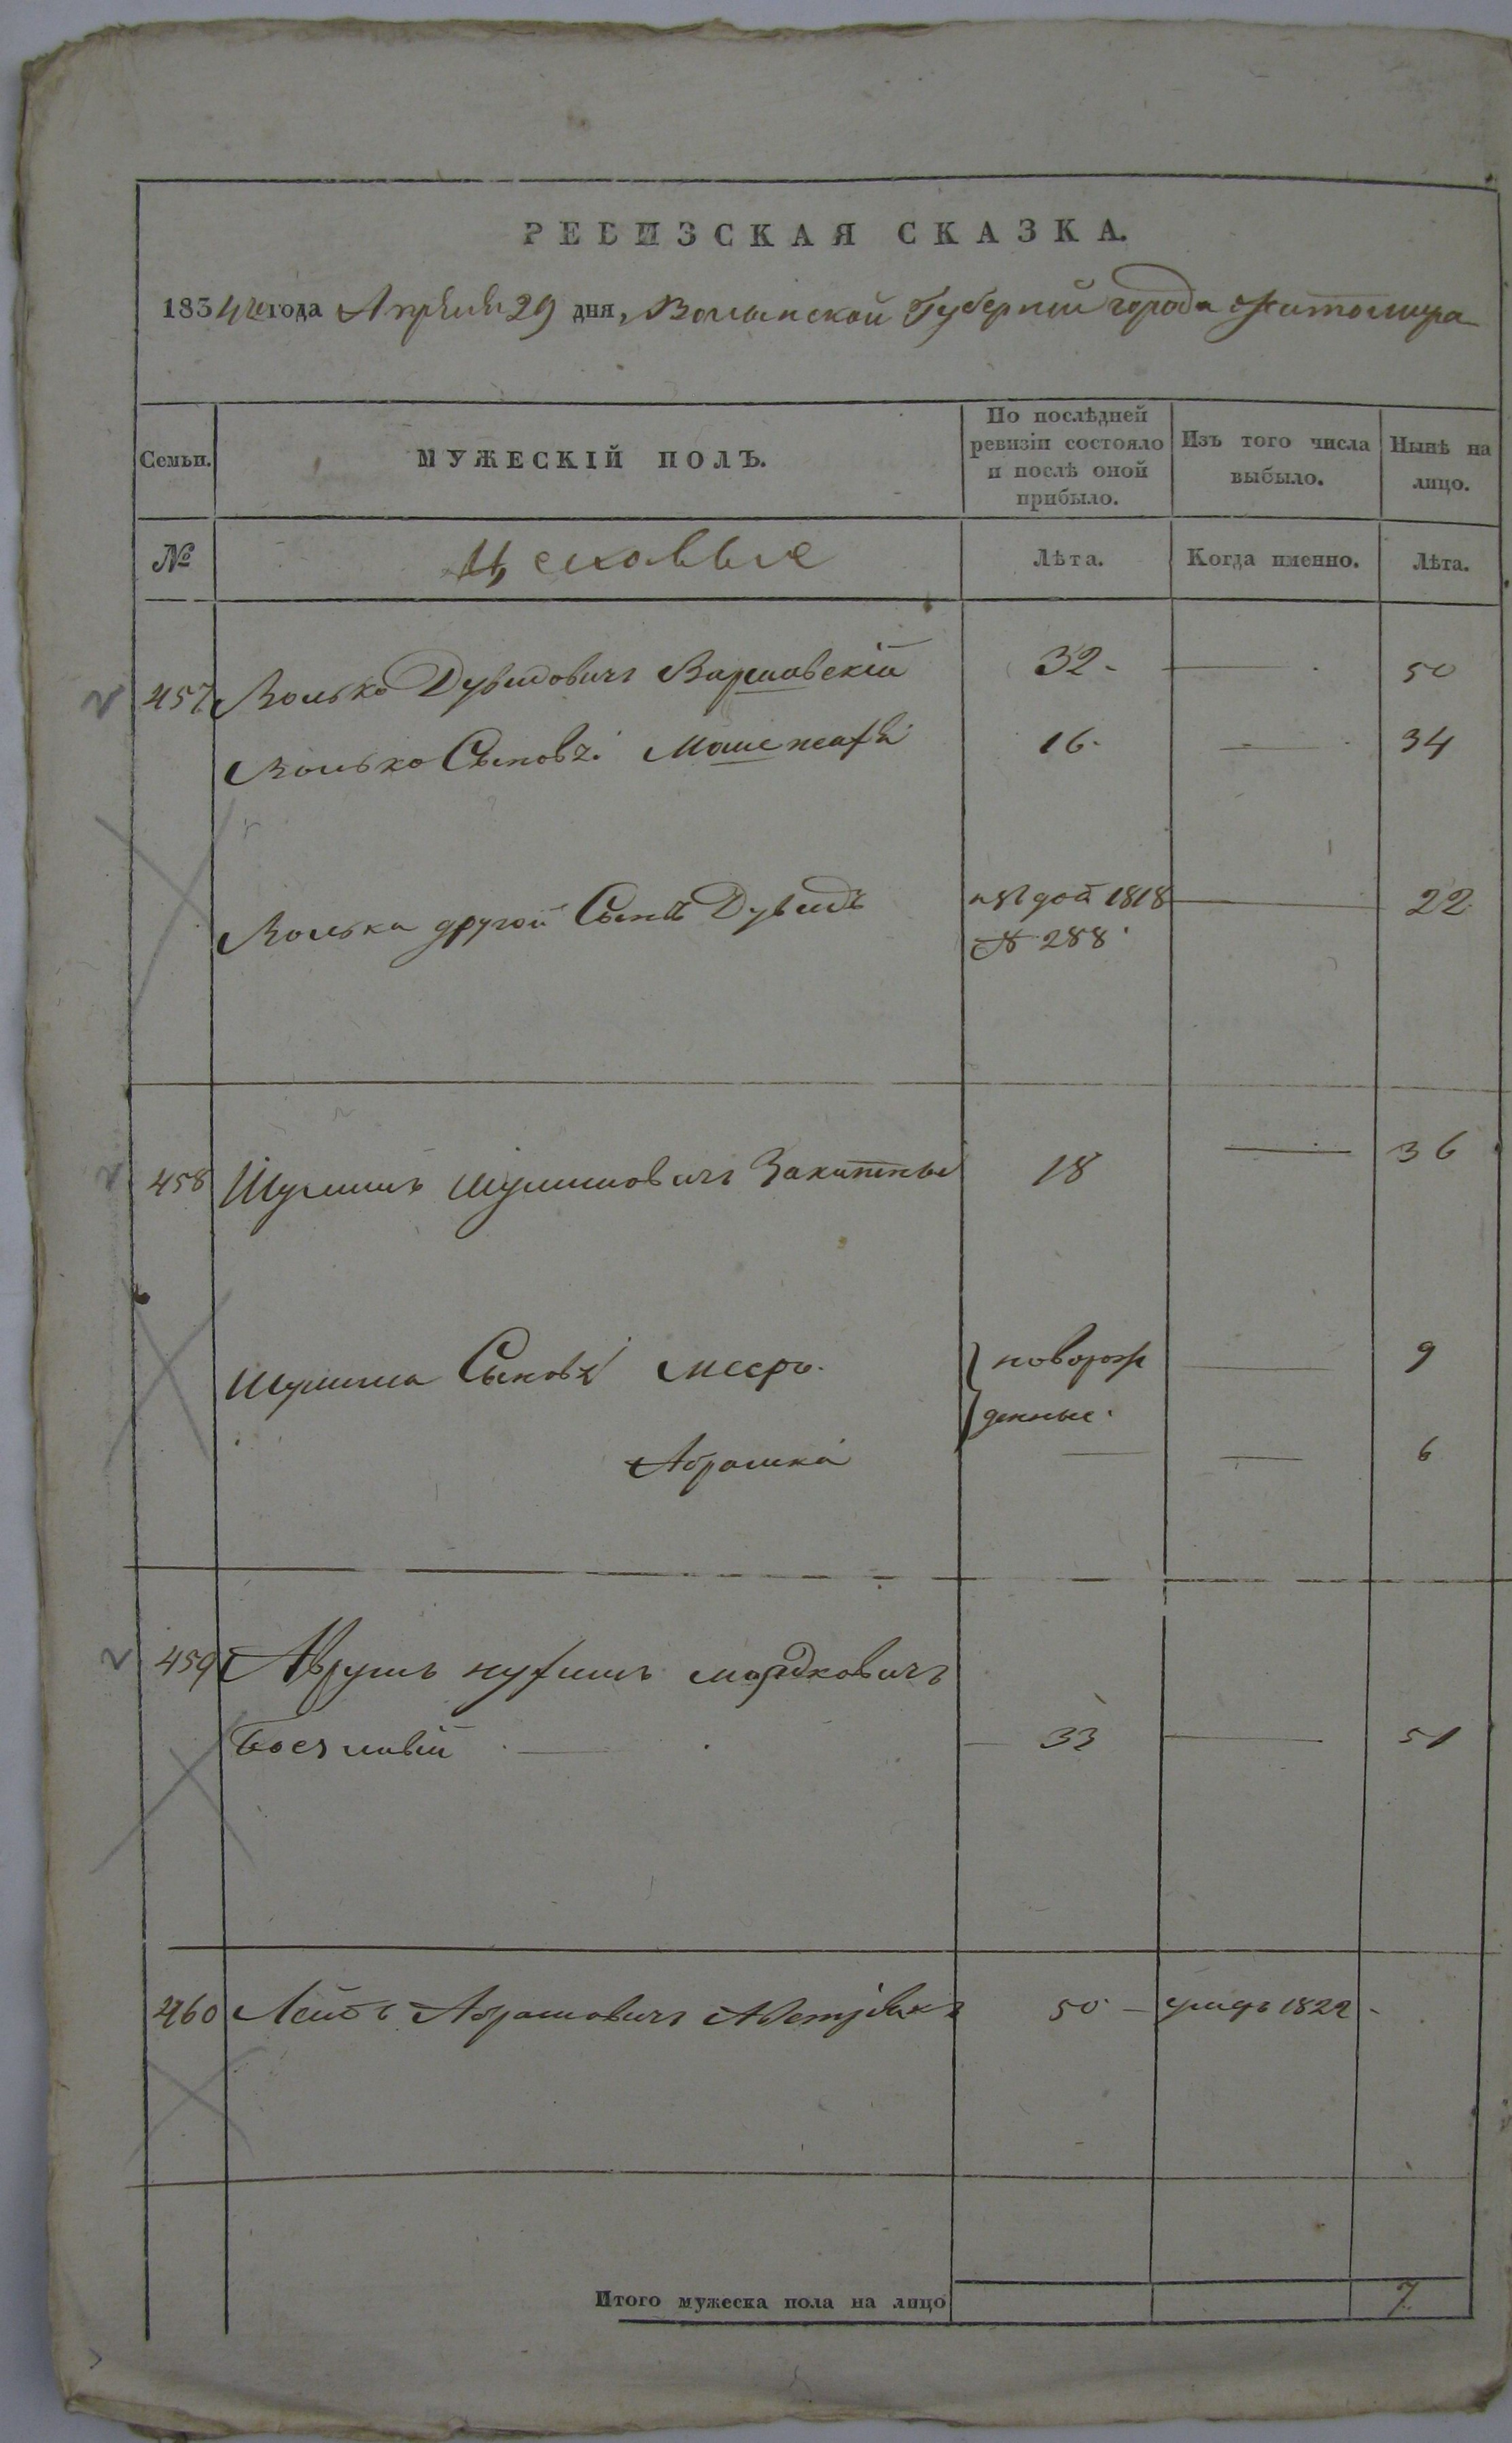 РЕВИЗСКАЯ СКАЗКА.
1834го года Апреля 29 дня, Волынской Губернии города Житомира
Семьи.
МУЖЕСКІЙ ПОЛЪ.
По послѣдней ревизіи состояло и послѣ оной прибыло.
Изъ того числа выбыло.
Нынѣ на лицо.
№
Лѣта.
Когда именно.
Лѣта.
457 Волько Дувидовичъ Варшавскій 32 50
Волько Сыновъя 16 34
Волька другой Сынъ Дувидъ 1818 22
№ 288
458 Шулимъ Шулимовичъ 18 36
Шулима Сыновья Мееръ новорож 9
денные
Абрамка 6
459 Аврумъ Нухимъ Мордковичъ
33 51
460 Лейбъ Абрамовичъ 50
Итого мужеска пола на лицо 7